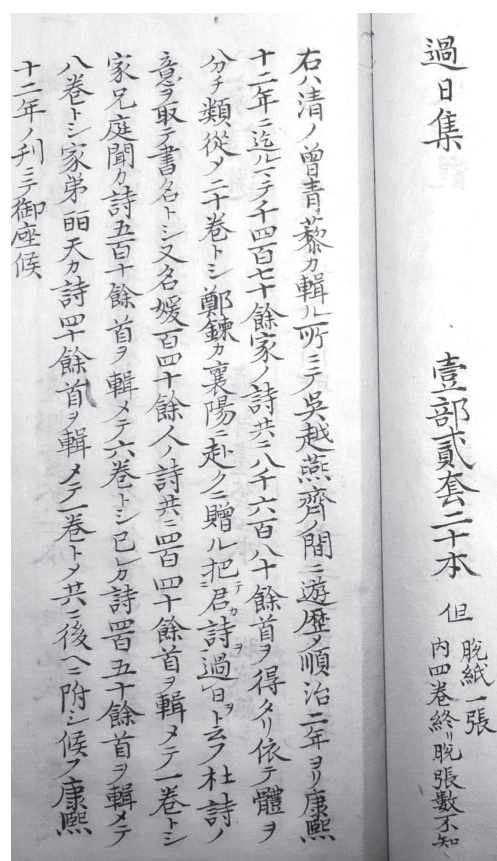 過日集　壹部貳套二十本　但
脫紙一張
内四卷終リ脫張數不知
右ハ清ノ曾青藜カ輯ル所ニテ吳越燕齊ノ間ニ遊歷メ順治二年ヨリ康熙
十二年ニ迄ルマテ千四百七十餘家ノ詩共ニ八千六百八十餘首ヲ得タリ依テ體ヲ
分チ類從メ二十卷トシ鄭鍊カ襄陽ニ赴クニ贈ル把テ君カ詩ヲ過ト日ヲ云フ杜詩ノ
意ヲ取テ書名トシ又名媛一百四十餘人ノ詩共ニ四百四十餘首ヲ輯メテ一卷トシ
家兄庭聞カ詩五百十餘首ヲ輯メテ六卷トシ已レカ詩四百五十餘首ヲ輯メテ
八卷トシ家弟丽天カ詩四十餘首ヲ輯メテ一卷トメ共ニ後ヘニ附シ候フ康熙
十二年ノ刋ニテ御座候